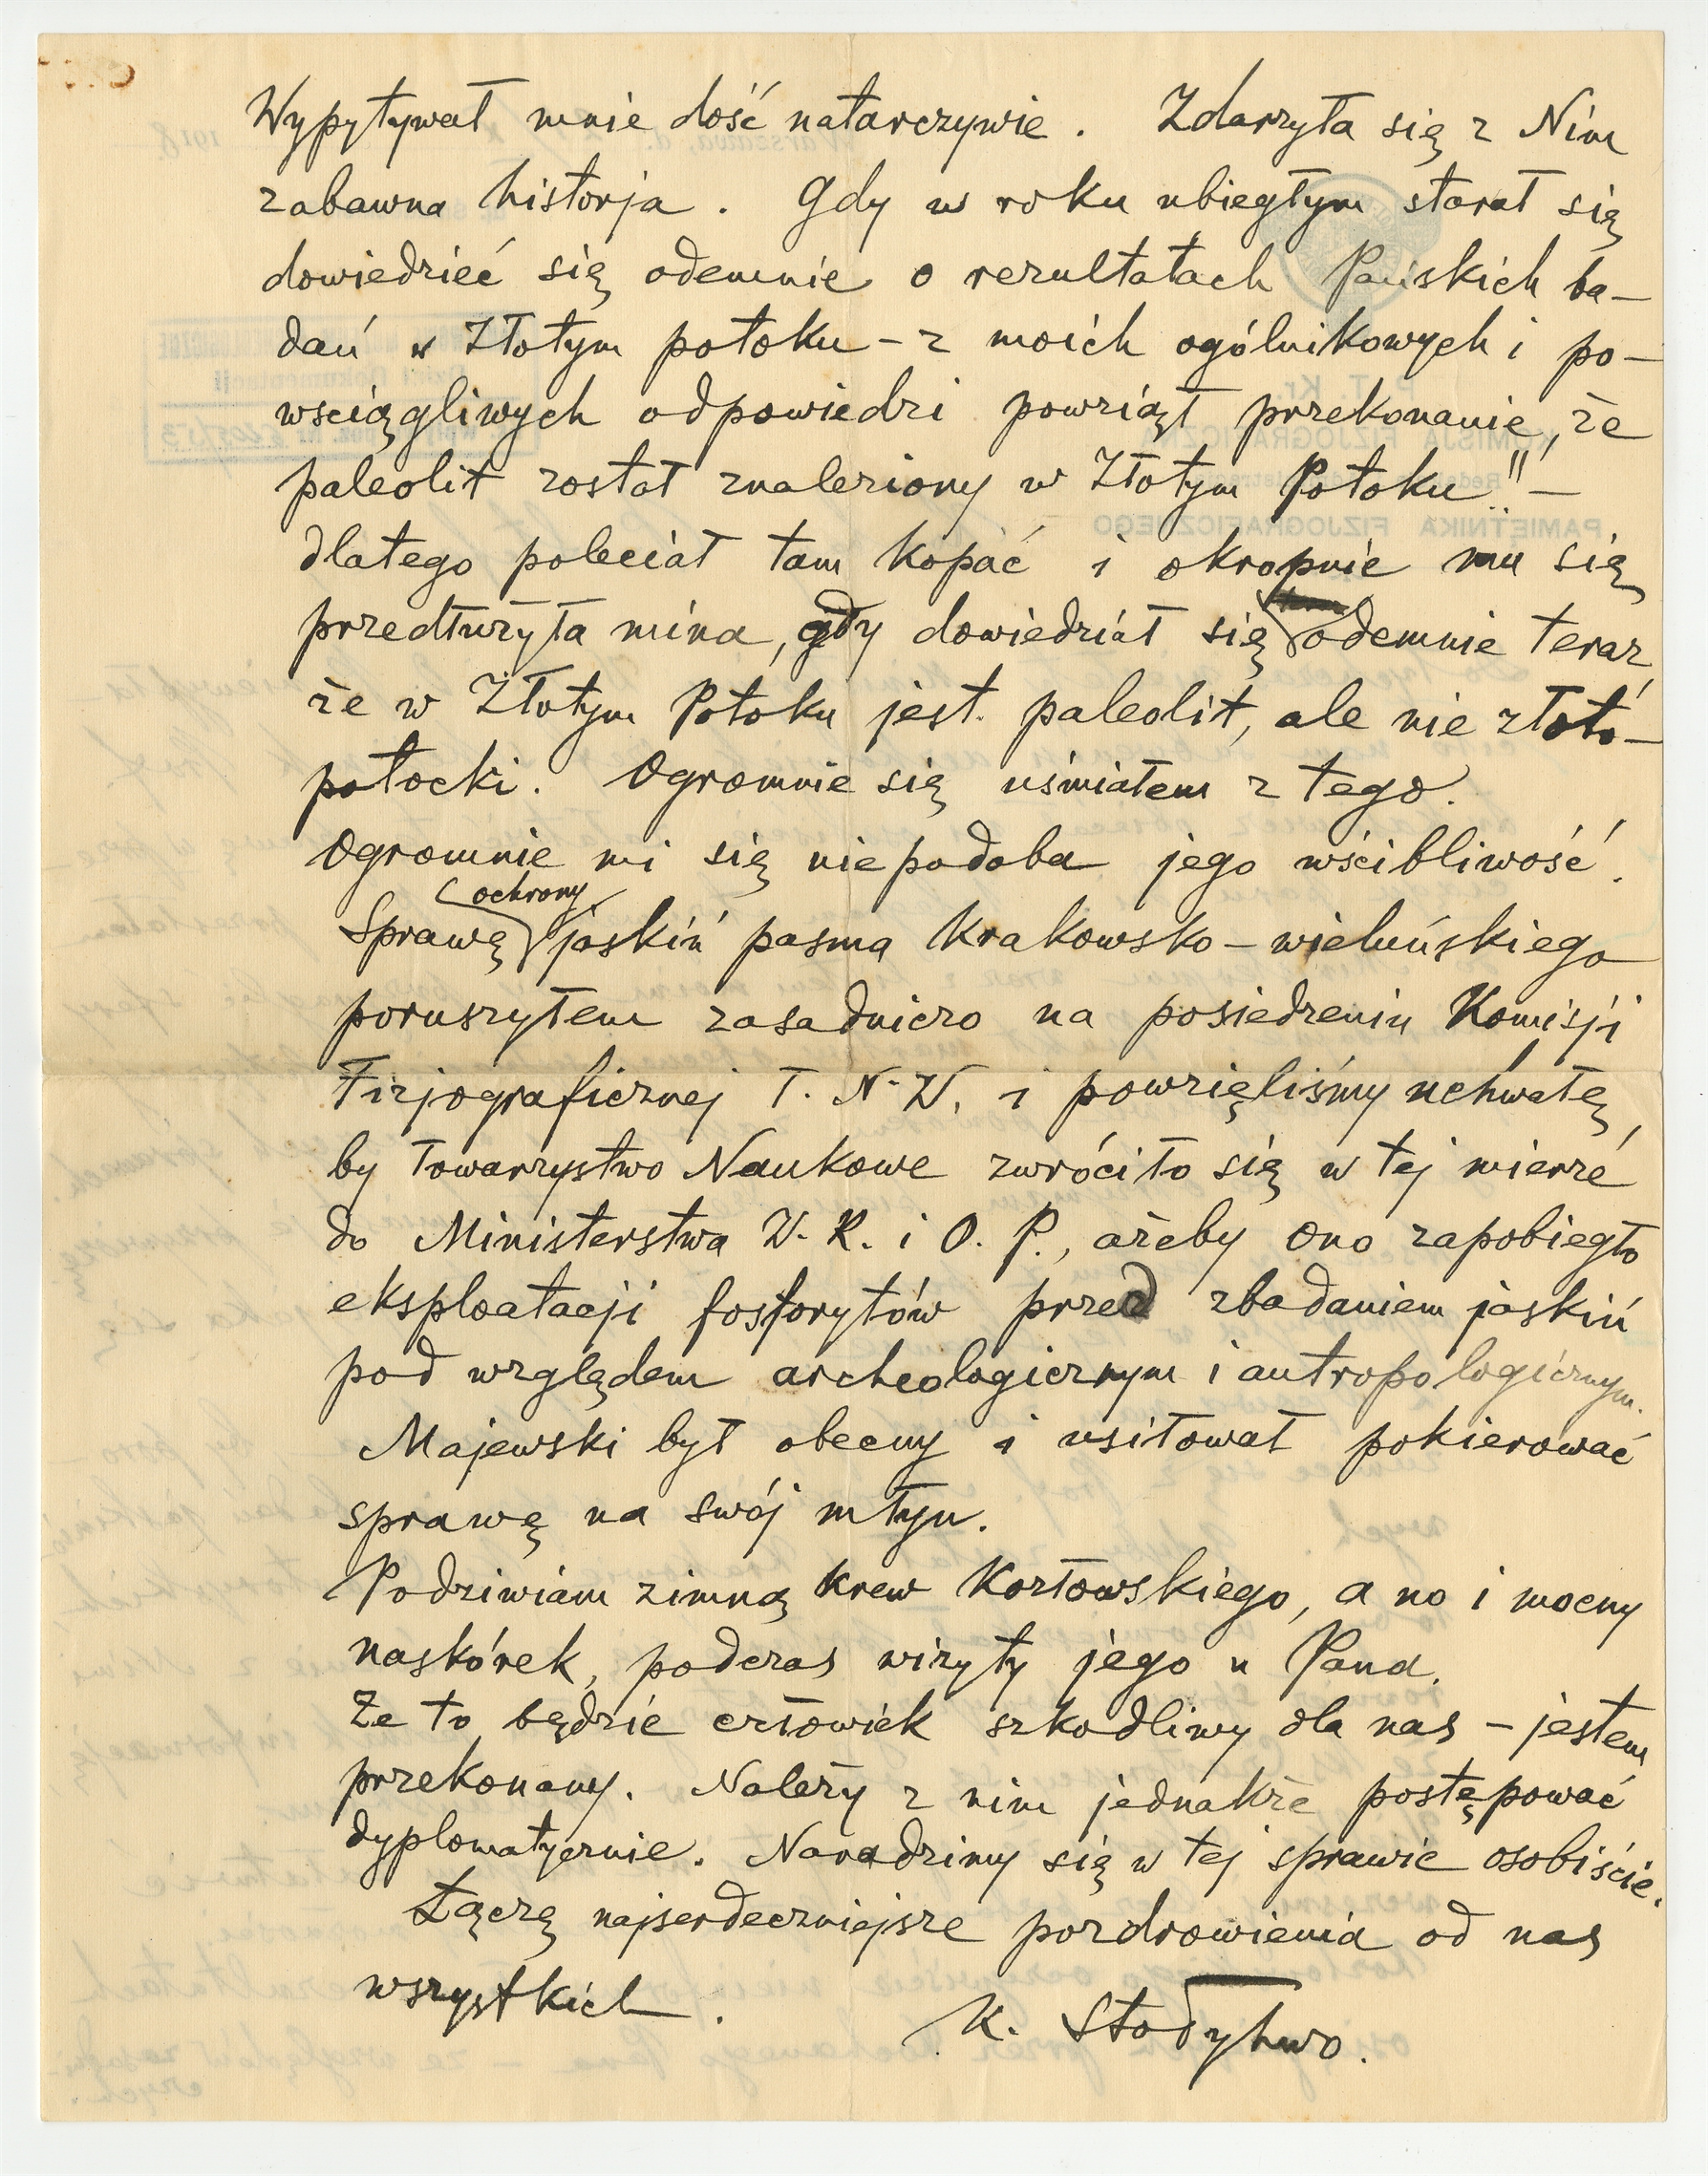 Wypytywał mnie dość natarczywie. Zdarzyła się z Nim
zabawna historja. Gdy w roku ubiegłym starał się
dowiedzieć się odemnie o rezultatach Pańskich ba-
dań w Złotym potoku - z moich ogólnikowych i po-
wściągliwych odpowiedzi powziął przekonanie, że
paleolit został znaleziony w Złotym Potoku" -
dlatego poleciał tam kopać i okropnie mu się
przedłużyła mina, gdy dowiedział się odemnie teraz
że w Złotym Potoku jest paleolit, ale nie złoto-
potocki. Ogromnie się uśmiałem z tego.
Ogromnie mi się niepodoba jego wścibliwość.
Sprawę ochrony jaskiń pasma Krakowsko-wieluńskiego
poruszyłem zasadniczo na posiedzeniu Komisji
Fizjograficznej T. N. W. i powzięliśmy uchwałę,
by Towarzystwo Naukowe zwróciło się w tej mierze
do Ministerstwa W. R. i O. P., ażeby ono zapobiegło
eksploatacji fosforytów przed zbadaniem jaskiń
pod względem archeologicznym i antropologicznym.
Majewski był obecny i usiłował pokierować
sprawę na swój młyn.
Podziwiam zimną krew Kozłowskiego, a no i mocny
naskórek, podczas wizyty jego u Pana.
Że to będzie człowiek szkodliwy dla nas - jestem
przekonany. Należy z nim jednakże postępować
dyplomatycznie. Naradzimy się w tej sprawie osobiście.
Łączę najserdeczniejsze pozdrowienia od nas
wszystkich.
K. Stołyhwo.